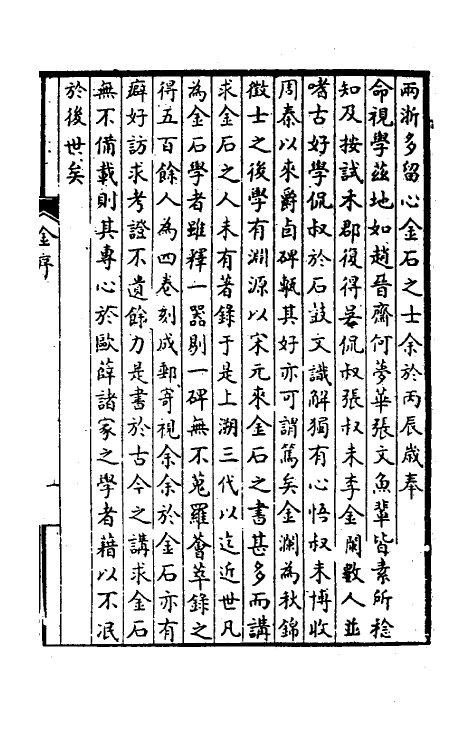 兩浙多留心金石之士余於丙辰歲奉
命視學茲地如趙晉齋何夢華張文魚輩皆素所稔
知及按試禾郡復得吳侃叔張叔未李金瀾數人並
嗜古好學侃叔於石鼓文識解獨有心悟叔未博收
周秦以來爵卣碑甎其好亦可謂篤矣金瀾為秋錦
徵士之後學有淵源以宋元來金石之書甚多而講
求金石之人未有著錄于是上溯三代以迄近世凡
為金石學者雖釋一器剔一碑無不蒐羅薈萃錄之
得五百餘人為四卷刻成郵寄視余余於金石亦有
癖好訪求考證不遺餘力是書於古今之講求金石
無不備載則其專心於歐薛諸家之學者藉以不泯
於後世矣
金序
一